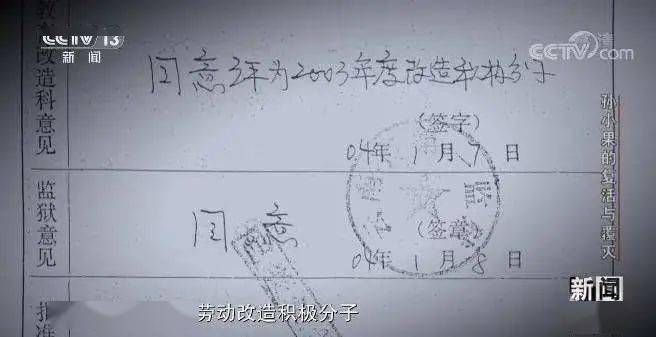 CCTV 13
新闻
CCTV.com
高清
改造科意见
同意评为2003年度改造积极分子
(签字)
04年1月7日
监狱意见
同意
(签章)
04年1月8日
批准
孙小果的复活与覆灭
新闻
劳动改造积极分子